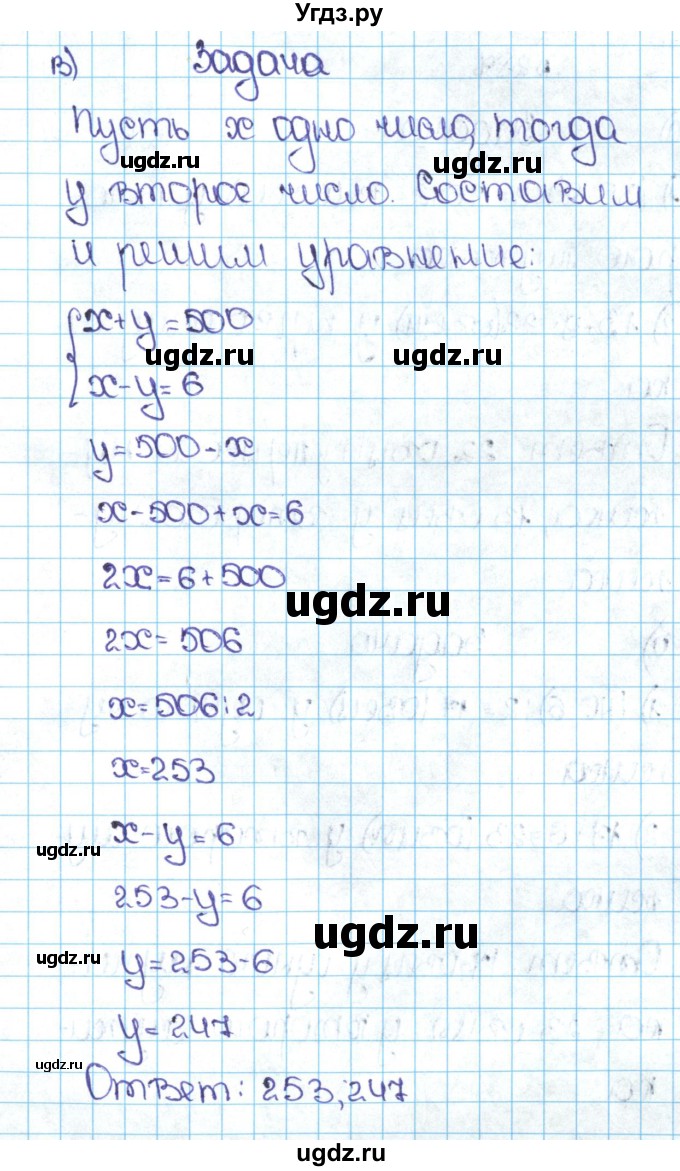 Угдз.ру
в) Задача
Пусть x одно число, тогда
ugdz.ru ugdz.ru
y второе число. Составим
и решим уравнение:
x+y=500
ugdz.ru ugdz.ru
x-y=6
y=500-x
x-500+x=6
2x=6+500
ugdz.ru
2x=506
x=506:2
x=253
x-y=6
ugdz.ru
253-y=6
ugdz.ru
y=253-6
ugdz.ru
y=247
ugdz.ru
Ответ: 253,247
ugdz.ru
Угдз.ру